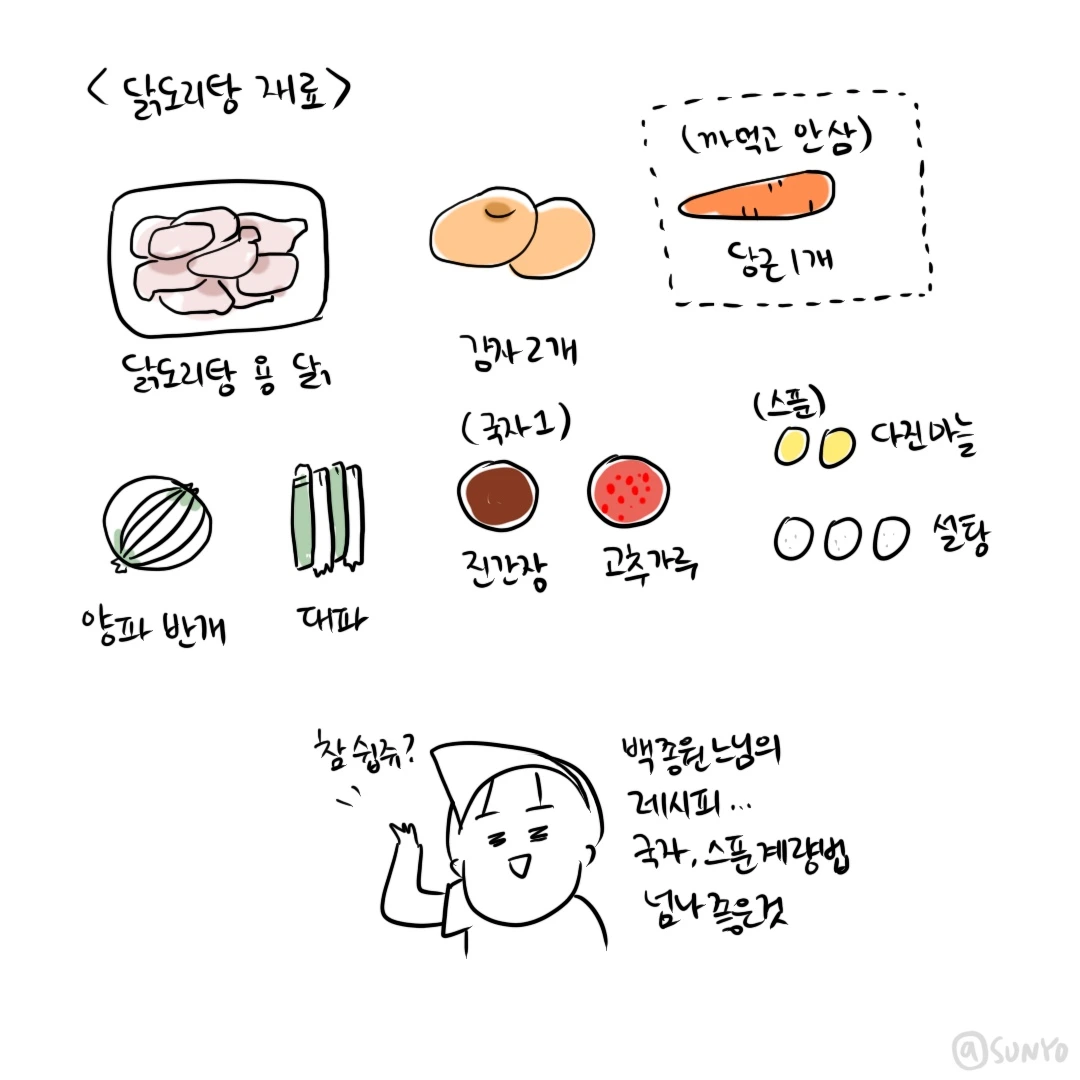 <닭도리탕 재료>
(까먹고 안삼)
당근 1개
닭도리탕 용 닭
감자 2개
(국자 1)
(스푼)
다진마늘
진간장
고추가루
설탕
양파 반개
대파
참 쉽쥬?
백종원느님의
레시피...
국자, 스푼계량법
넘나 죻은것
@SUNYO